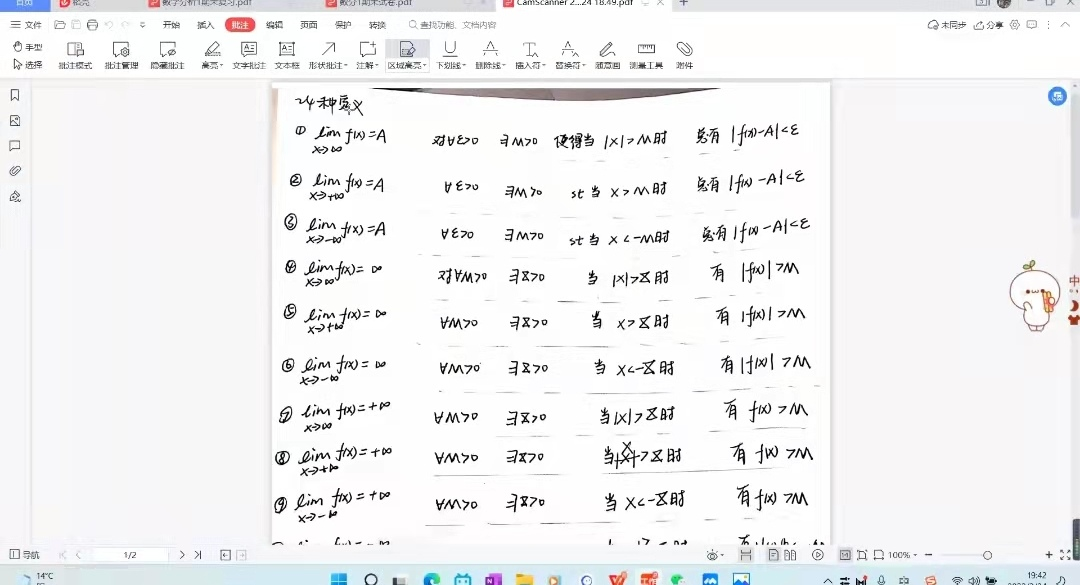 首页 稻壳 数学分析1期末复习.pdf 数分1期末试卷.pdf CamScanner 2...24 18.49.pdf
文件 开始 插入 批注 编辑 页面 保护 转换 查找功能、文档内容 未同步 分享
手型 选择 批注模式 批注管理 隐藏批注 高亮 文字批注 文本框 形状批注 注解 区域高亮 下划线 删除线 插入符 替换符 随意画 测量工具 附件
24种定义
① lim x→∞ f(x)=A 对∀ε>0 ∃M>0 使得当 |x|>M时 总有 |f(x)-A|<ε
② lim x→+∞ f(x)=A ∀ε>0 ∃M>0 st 当 x>M时 总有 |f(x)-A|<ε
③ lim x→-∞ f(x)=A ∀ε>0 ∃M>0 st 当 x<-M时 总有 |f(x)-A|<ε
④ lim x→∞ f(x)=∞ 对∀M>0 ∃X>0 当 |x|>X时 有 |f(x)|>M
⑤ lim x→+∞ f(x)=∞ ∀M>0 ∃X>0 当 x>X时 有 |f(x)|>M
⑥ lim x→-∞ f(x)=∞ ∀M>0 ∃X>0 当 x<-X时 有 |f(x)|>M
⑦ lim x→∞ f(x)=+∞ ∀M>0 ∃X>0 当 |x|>X时 有 f(x)>M
⑧ lim x→+∞ f(x)=+∞ ∀M>0 ∃X>0 当 x>X时 有 f(x)>M
⑨ lim x→-∞ f(x)=+∞ ∀M>0 ∃X>0 当 x<-X时 有 f(x)>M
中
导航 1/2 100%
14°C 19:42